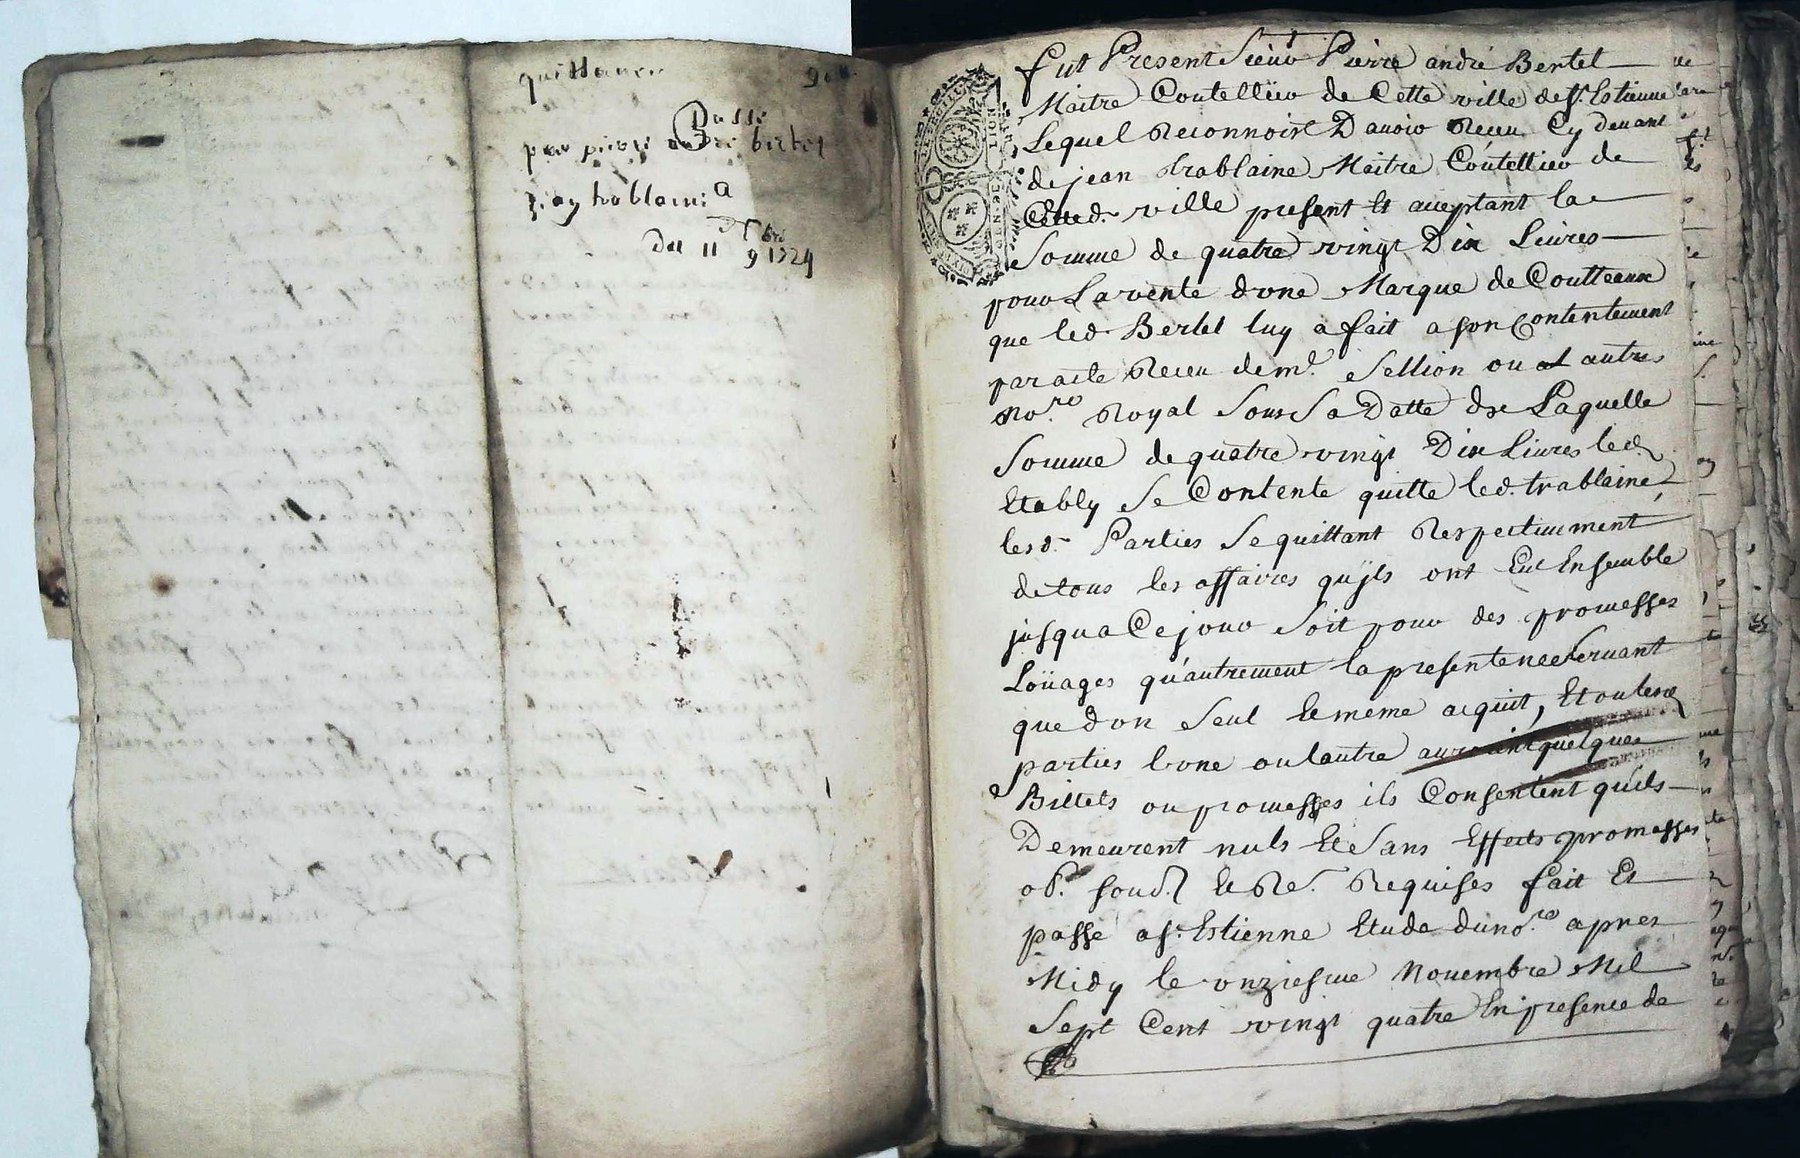 quittance
passé
par pierre andré bertet
a
jean trablaine
du 11 9bre 1724
fut Present Sieur Pierre andré Bertet
Maitre Coutellieur de Cette ville de St. Estienne
Lequel Reconnoist D'auoir Receu Cy deuant
de jean trablaine Maitre Coutellieur de
Cetted. ville present Et aceptant la
Somme de quatre vingt Dix Liures
pour La vente d'une Marque de Coutteaux
que led. Bertet luy a fait a son Contentement
par acte Receu de me. Sellion ou autres
Nore. Royal Sous Sa Datte de Laquelle
Somme de quatre vingt Dix Liures led.
Etably Se Contente quitte led. trablaine
lesd. Parties Se quittant Respectiuement
de tous les affaires qu'jls ont Eut Ensemble
jusqu'a Ce jour Soit pour des promesses
Loüages qu'autrement la presente ne Seruant
que d'un Seul Et meme acquit, Et ou lesd.
parties l'une ou l'autre auroient quelques
Billets ou promesses ils Consentent qu'ils
Demeurent nuls Et Sans Effects promesses
ob. soud. Et Re. Requises fait Et
passé a St. Estienne Etude du nore. apres
Midy le onziesme Nouembre Mil
Sept Cent vingt quatre En presence de